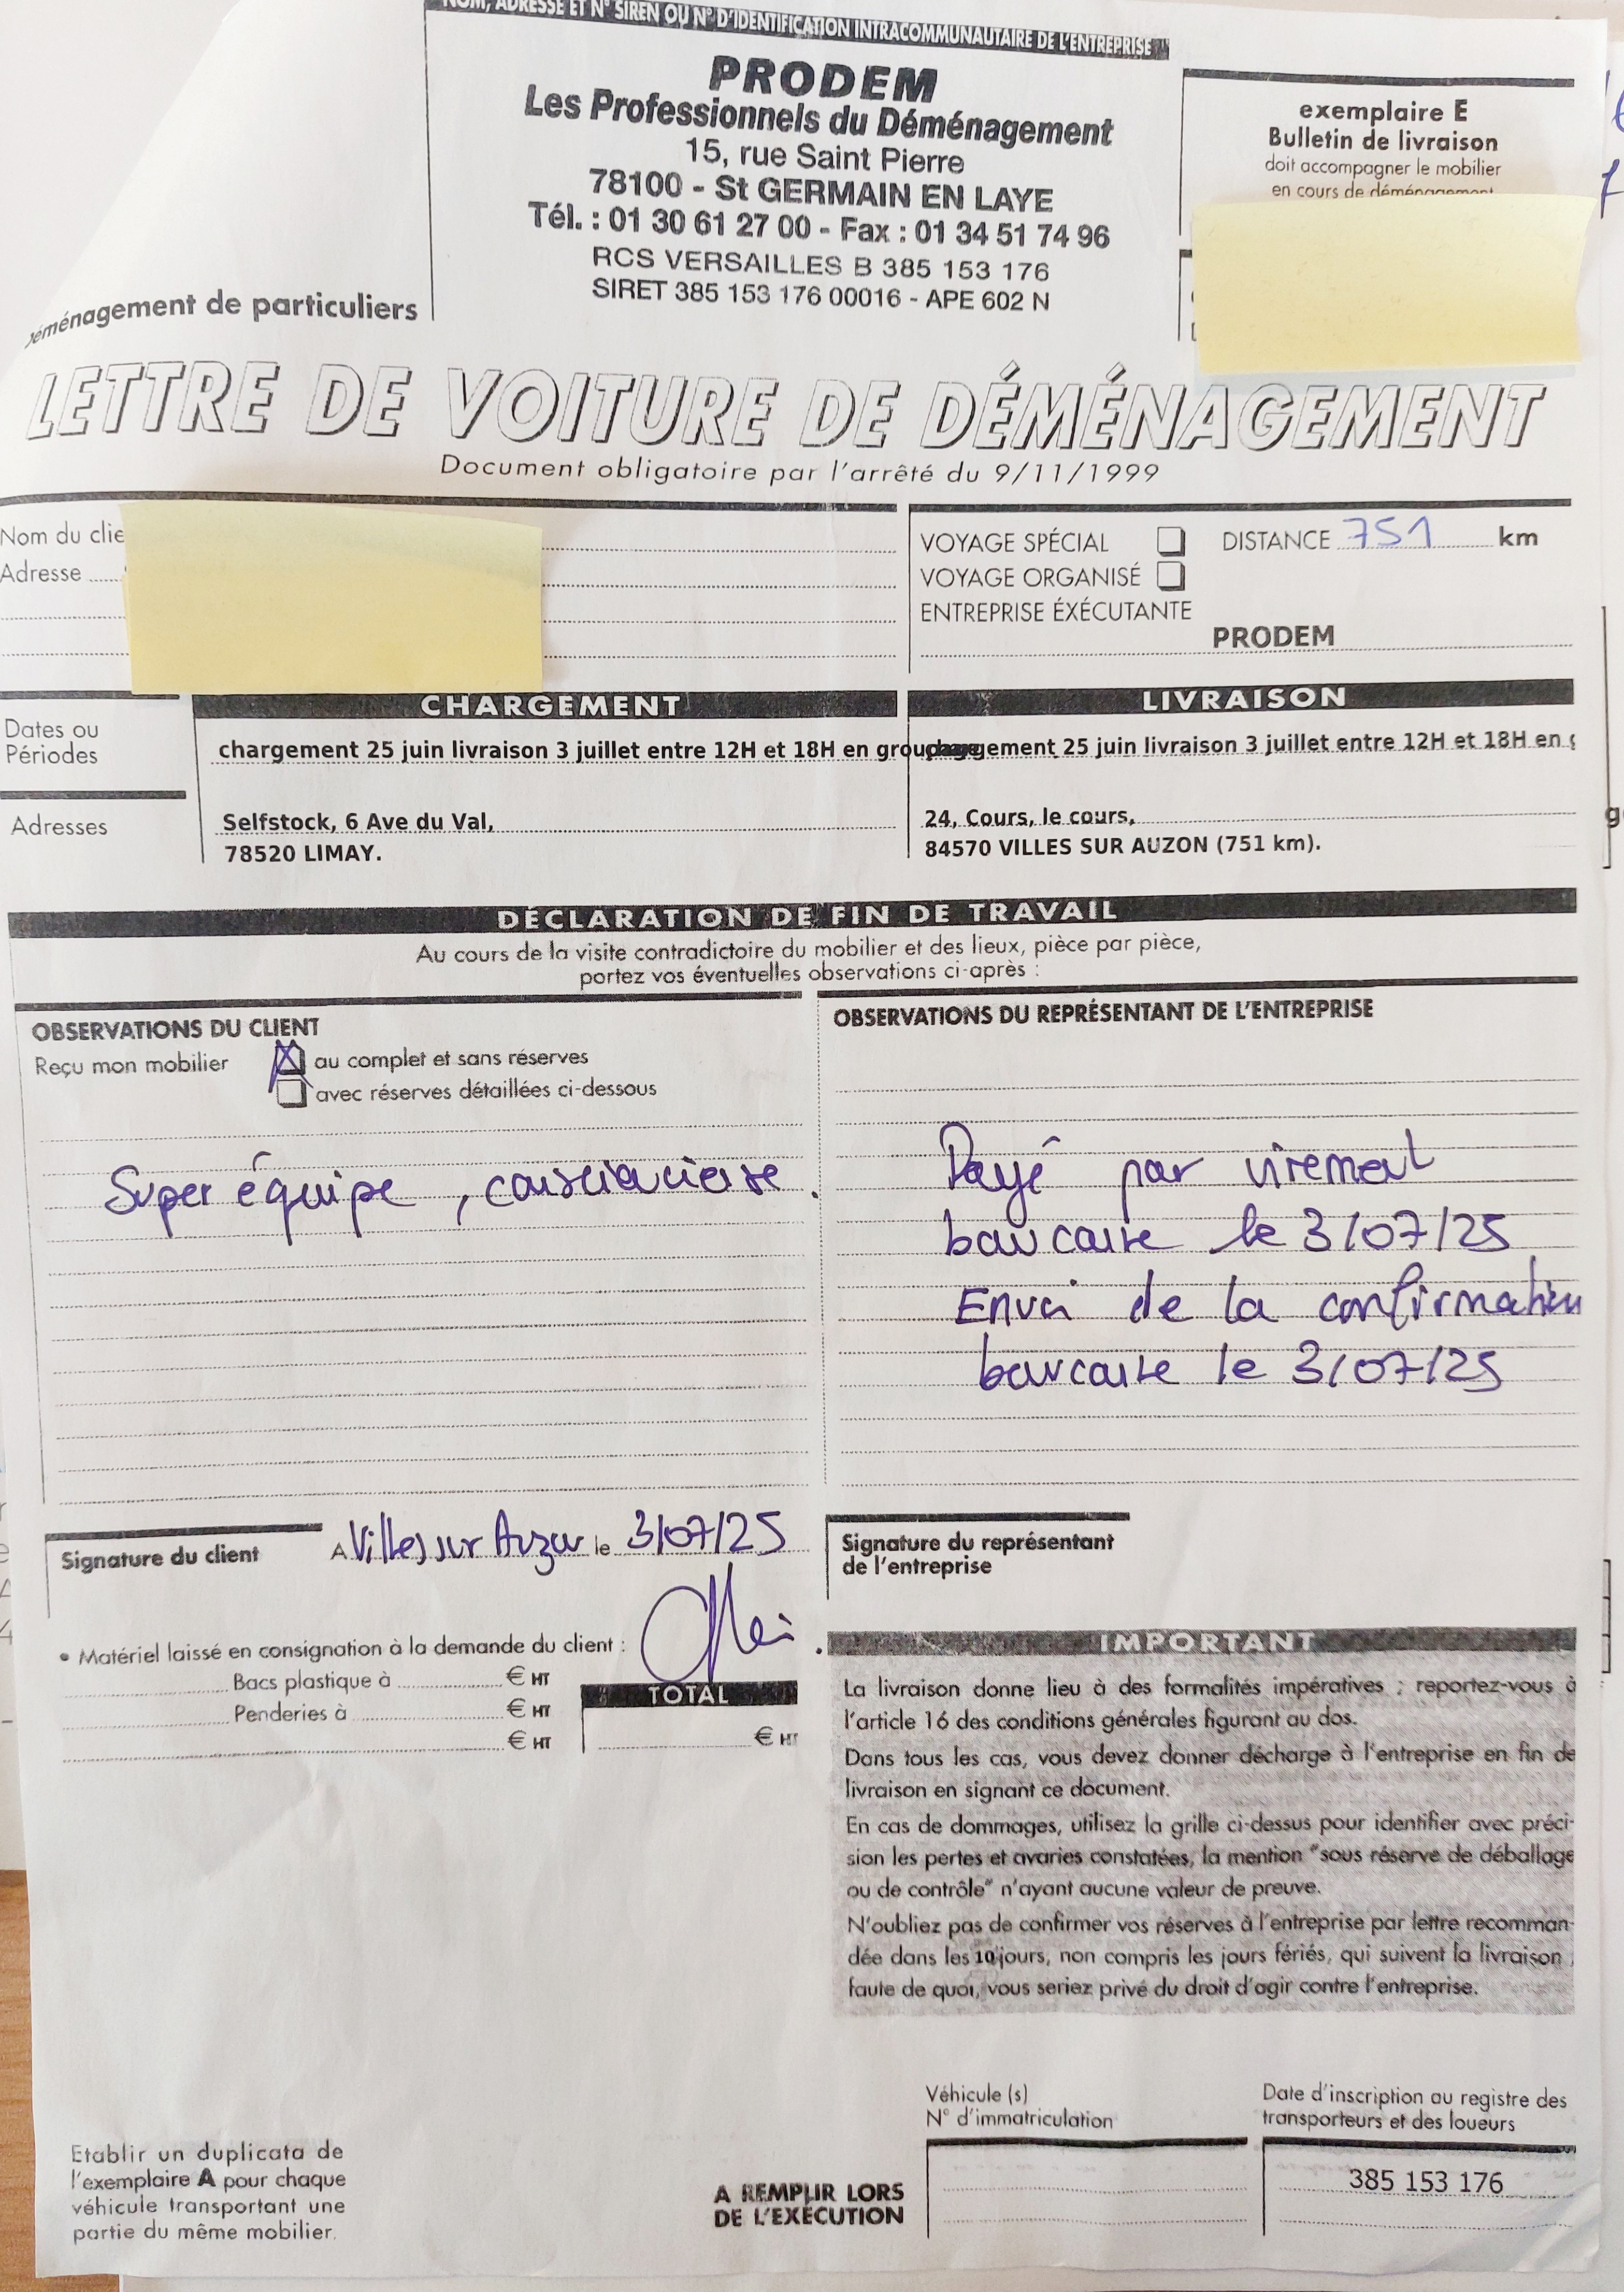 NOM, ADRESSE ET N° SIREN OU N° D'IDENTIFICATION INTRACOMMUNAUTAIRE DE L'ENTREPRISE
PRODEM
Les Professionnels du Déménagement
15, rue Saint Pierre
78100 - St GERMAIN EN LAYE
Tél. : 01 30 61 27 00 - Fax : 01 34 51 74 96
RCS VERSAILLES B 385 153 176
SIRET 385 153 176 00016 - APE 602 N
exemplaire E
Bulletin de livraison
doit accompagner le mobilier
en cours de déménagement
déménagement de particuliers
LETTRE DE VOITURE DE DÉMÉNAGEMENT
Document obligatoire par l'arrêté du 9/11/1999
Nom du clie
Adresse
VOYAGE SPÉCIAL DISTANCE 751 km
VOYAGE ORGANISÉ
ENTREPRISE ÉXÉCUTANTE
PRODEM
CHARGEMENT
LIVRAISON
Dates ou
Périodes
chargement 25 juin livraison 3 juillet entre 12H et 18H en groupage
chargement 25 juin livraison 3 juillet entre 12H et 18H en g
Adresses
Selfstock, 6 Ave du Val,
78520 LIMAY.
24, Cours, le cours,
84570 VILLES SUR AUZON (751 km).
DÉCLARATION DE FIN DE TRAVAIL
Au cours de la visite contradictoire du mobilier et des lieux, pièce par pièce,
portez vos éventuelles observations ci-après :
OBSERVATIONS DU CLIENT
Reçu mon mobilier au complet et sans réserves
avec réserves détaillées ci-dessous
Super équipe, consciencieuse.
OBSERVATIONS DU REPRÉSENTANT DE L'ENTREPRISE
Payé par virement
bancaire le 3/07/25
Envoi de la confirmation
bancaire le 3/07/25
Signature du client
A Villes sur Auzon le 3/07/25
Signature du représentant
de l'entreprise
• Matériel laissé en consignation à la demande du client :
Bacs plastique à € HT
Penderies à € HT
€ HT
TOTAL
€ HT
IMPORTANT
La livraison donne lieu à des formalités impératives ; reportez-vous à
l'article 16 des conditions générales figurant au dos.
Dans tous les cas, vous devez donner décharge à l'entreprise en fin de
livraison en signant ce document.
En cas de dommages, utilisez la grille ci-dessus pour identifier avec préci-
sion les pertes et avaries constatées, la mention "sous réserve de déballage
ou de contrôle" n'ayant aucune valeur de preuve.
N'oubliez pas de confirmer vos réserves à l'entreprise par lettre recomman-
dée dans les 10 jours, non compris les jours fériés, qui suivent la livraison ;
faute de quoi, vous seriez privé du droit d'agir contre l'entreprise.
Etablir un duplicata de
l'exemplaire A pour chaque
véhicule transportant une
partie du même mobilier.
A REMPLIR LORS
DE L'EXÉCUTION
Véhicule (s)
N° d'immatriculation
Date d'inscription au registre des
transporteurs et des loueurs
385 153 176